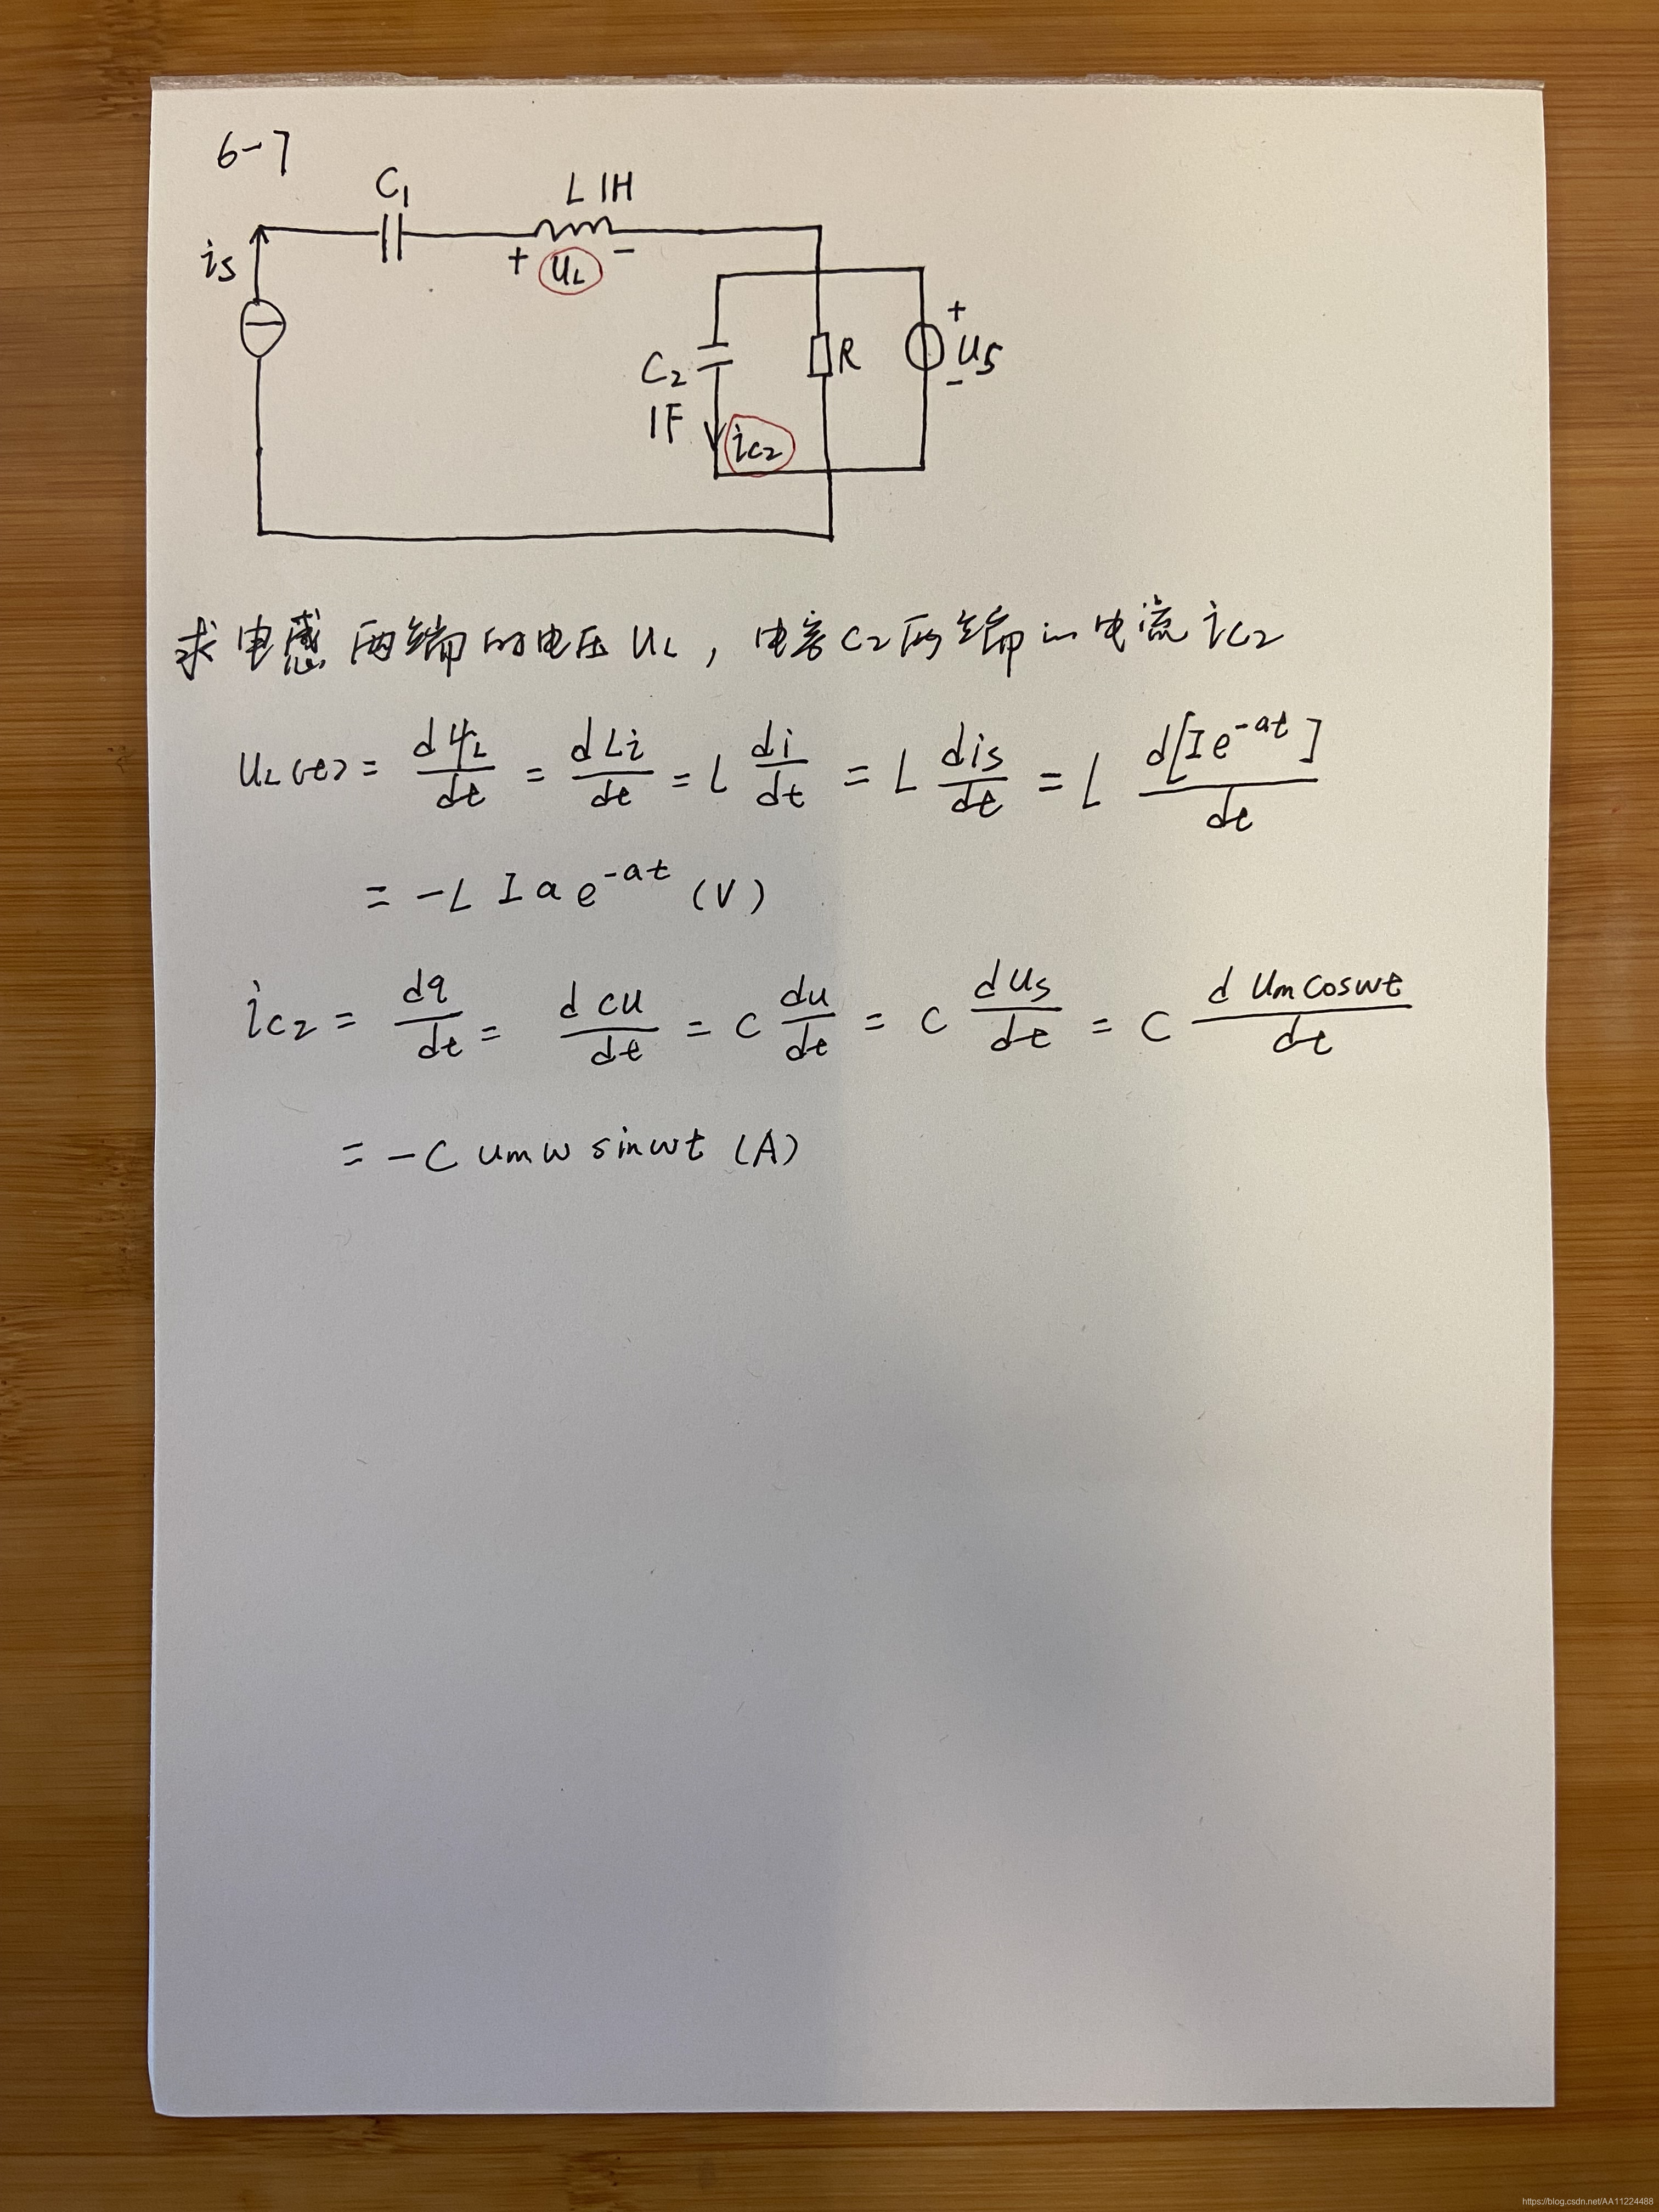 6-7
C₁
L 1H
is
+ uL -
C₂
1F
ic₂
R
+
us
-
求电感两端的电压 uL , 电容C₂两端的电流 ic₂
uL(t) = dψL/dt = dLi/dt = L di/dt = L dis/dt = L d[Ie^-at]/dt
= -L I a e^-at (V)
ic₂ = dq/dt = d cu/dt = C du/dt = C dus/dt = C d Um coswt/dt
= -C Um w sinwt (A)
https://blog.csdn.net/AA11224488